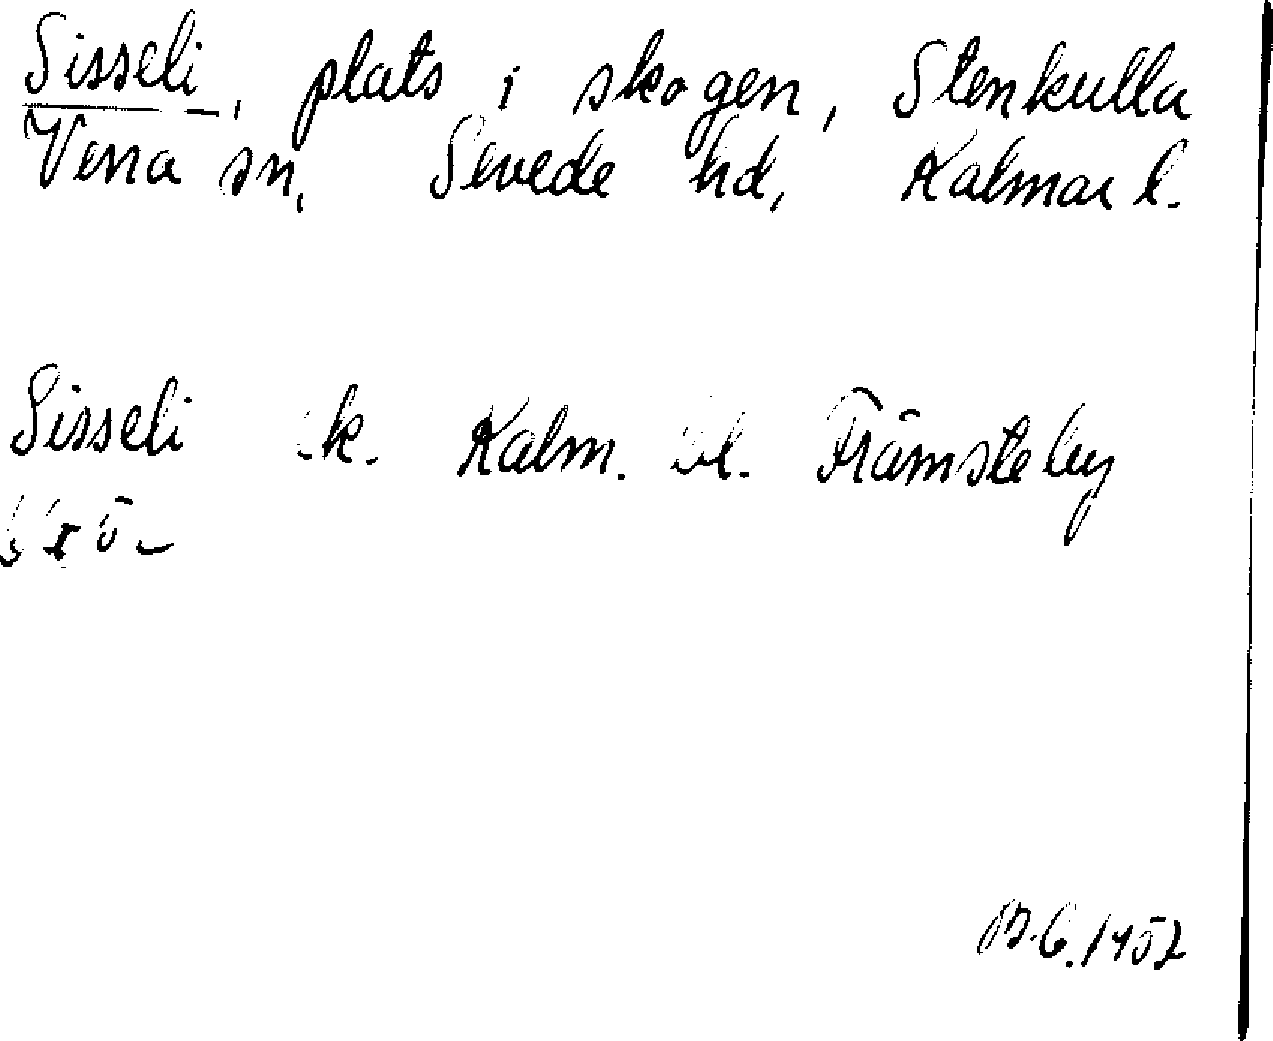 Sisseli, plats i skogen, Stenkulla
Vena sn, Sevede hd, Kalmar l.
Sisseli ek. Kalm. bl. Främsteby
B.G. 1952